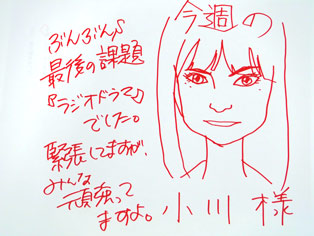 ぶんぶん♪
最後の課題
『ラジオドラマ』
でした。
緊張してますが、
みんな
頑張って
ますよ。
今週の
小川 様